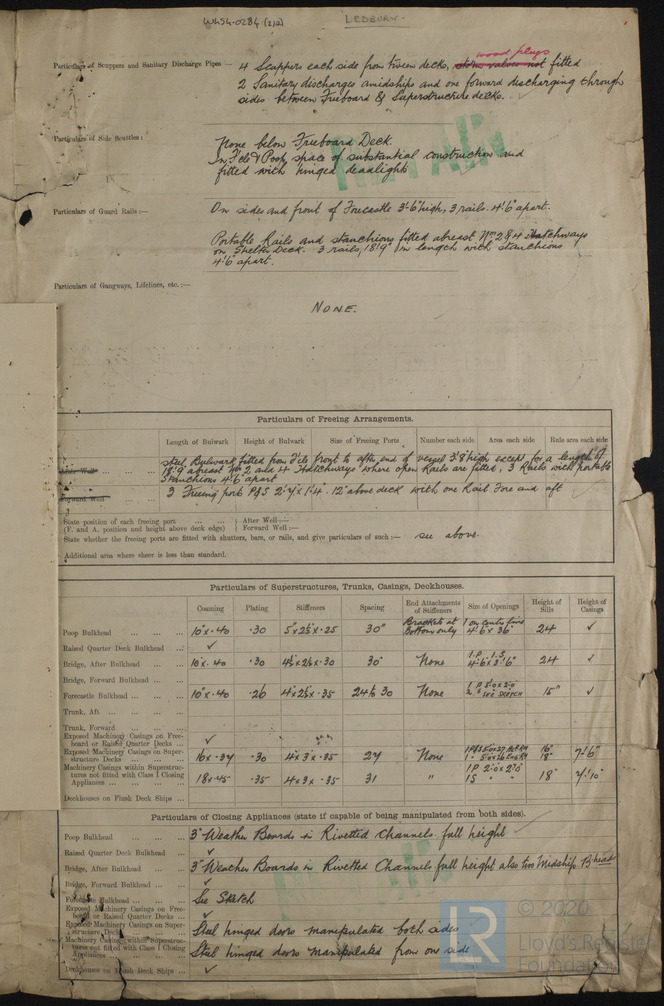 W454-0284 (2/2)
LEDBURY.
Particulars of Scuppers and Sanitary Discharge Pipes — 4 Scuppers each side from tween decks, wood plugs fitted
2 Sanitary discharges amidships and one forward discharging through
sides between Freeboard & Superstructure decks.
Particulars of Side Scuttles :
None below Freeboard Deck.
In F'cle & Poop space of substantial construction and
fitted with hinged deadlights
Particulars of Guard Rails :—
On sides and front of Forecastle 3'-6" high, 3 rails. 4'-6" apart.
Portable Rails and stanchions fitted abreast Nos 2 & 4 Hatchways
on Shelter Deck. 3 rails, 18'-9" in length with stanchions
4'-6" apart.
Particulars of Gangways, Lifelines, etc. :—
NONE.
Particulars of Freeing Arrangements.
Length of Bulwark Height of Bulwark Size of Freeing Ports Number each side Area each side Rule area each side
Steel Bulwark fitted from F'cle front to after end of vessel 3'8" high except for a length of
18'-9 abreast Nos 2 and 4 Hatchways where open Rails are fitted, 3 Rails with portable
Stanchions 4'-6" apart
3 Freeing ports P&S 12" above deck with one Rail Fore and aft
State position of each freeing port ... ... } After Well :—
(F. and A. position and height above deck edge) } Forward Well :—
State whether the freeing ports are fitted with shutters, bars, or rails, and give particulars of such :— see above.
Additional area where sheer is less than standard.
Particulars of Superstructures, Trunks, Casings, Deckhouses.
Coaming Plating Stiffeners Spacing End Attachments of Stiffeners Size of Openings Height of Sills Height of Casings
Poop Bulkhead ... ... ... 10" x .40 .30 5" x 2½" x .25 30" Brackets at Bottom only 1 on centre line 4'-6" x 36" 24 ✓
Raised Quarter Deck Bulkhead ... ✓
Bridge, After Bulkhead ... ... 10" x .40 .30 4½ x 2½ x .30 30" None 1 P. 1. S 4'-6 x 3'-6" 24 ✓
Bridge, Forward Bulkhead ...
Forecastle Bulkhead ... ... ... 10" x .40 .26 4" x 2½" x .35 24 & 30 None SEE SKETCH 15" ✓
Trunk, Aft ... ... ... ...
Trunk, Forward ... ... ...
Exposed Machinery Casings on Free-
board or Raised Quarter Decks ... ✓
Exposed Machinery Casings on Super-
structure Decks ... ... ... 16 x .34 .30 4" x 3" x .35 27 None 16" 18" 7'-6"
Machinery Casings within Superstruc-
tures not fitted with Class I Closing
Appliances ... ... ... 18 x .45 .35 4 x 3 x .35 31 " 1 P 2'0" x 2'0" 1 S " " 18" 7'-10"
Deckhouses on Flush Deck Ships ...
Particulars of Closing Appliances (state if capable of being manipulated from both sides).
Poop Bulkhead ... ... ... 3" Weather Boards in Rivetted Channels full height
Raised Quarter Deck Bulkhead ... ✓
Bridge, After Bulkhead ... ... 3" Weather Boards in Rivetted Channels full height also two Midship B'head
Bridge, Forward Bulkhead ... ✓
Forecastle Bulkhead ... ... See Sketch
Exposed Machinery Casings on Free-
board or Raised Quarter Decks ... ✓
Exposed Machinery Casings on Super-
structure Decks ... ... Steel hinged doors manipulated both sides
Machinery Casings within Superstruc-
tures not fitted with Class I Closing
Appliances ... ... Steel hinged doors manipulated from one side
Deckhouses on Flush Deck Ships ... ✓
LR
© 2020
Lloyd's Register
Foundation